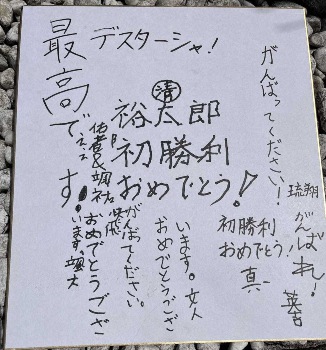 最高でえええす!
デスターシャ!
㊞靖
裕太郎
初勝利
おめでとう!
がんばってください!
琉翔
がんばれ!
英吉
初勝利
おめでとう!
真一
おめでとうござ
います。友人
がんばってください。
おめでとうござ
います。颯大